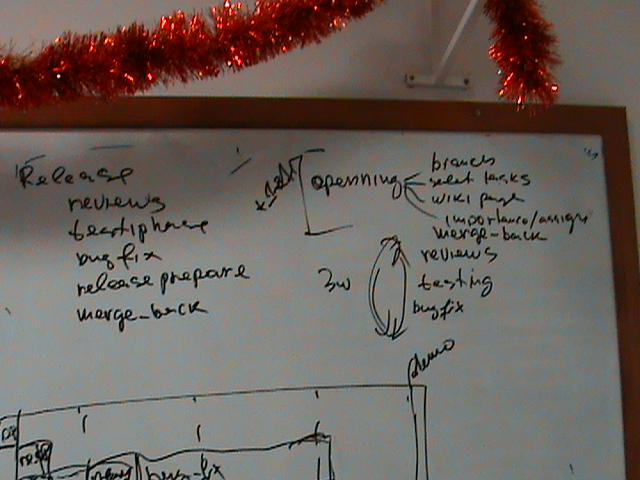 Release
reviews
bugfix
release prepare
merge-back
openning
branch
select tasks
wiki page
importance/assign
merge-back
reviews
3w
testing
bugfix
demo